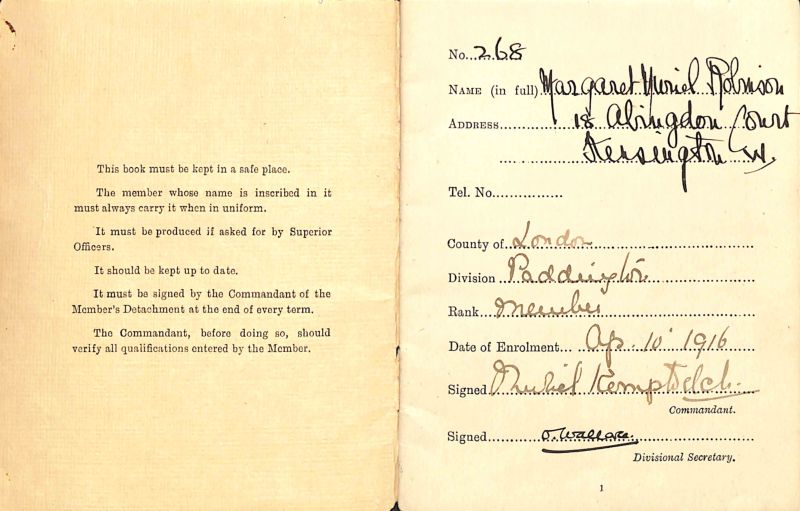 This book must be kept in a safe place.
The member whose name is inscribed in it
must always carry it when in uniform.
It must be produced if asked for by Superior
Officers.
It should be kept up to date.
It must be signed by the Commandant of the
Member's Detachment at the end of every term.
The Commandant, before doing so, should
verify all qualifications entered by the Member.
No. 268
NAME (in full) Margaret Muriel Robinson
ADDRESS 18 Abingdon Court
Kensington W.
Tel. No.
County of London
Division Paddington
Rank Member
Date of Enrolment Ap. 10 1916
Signed Muriel
Commandant.
Signed O. Wallace.
Divisional Secretary.
1